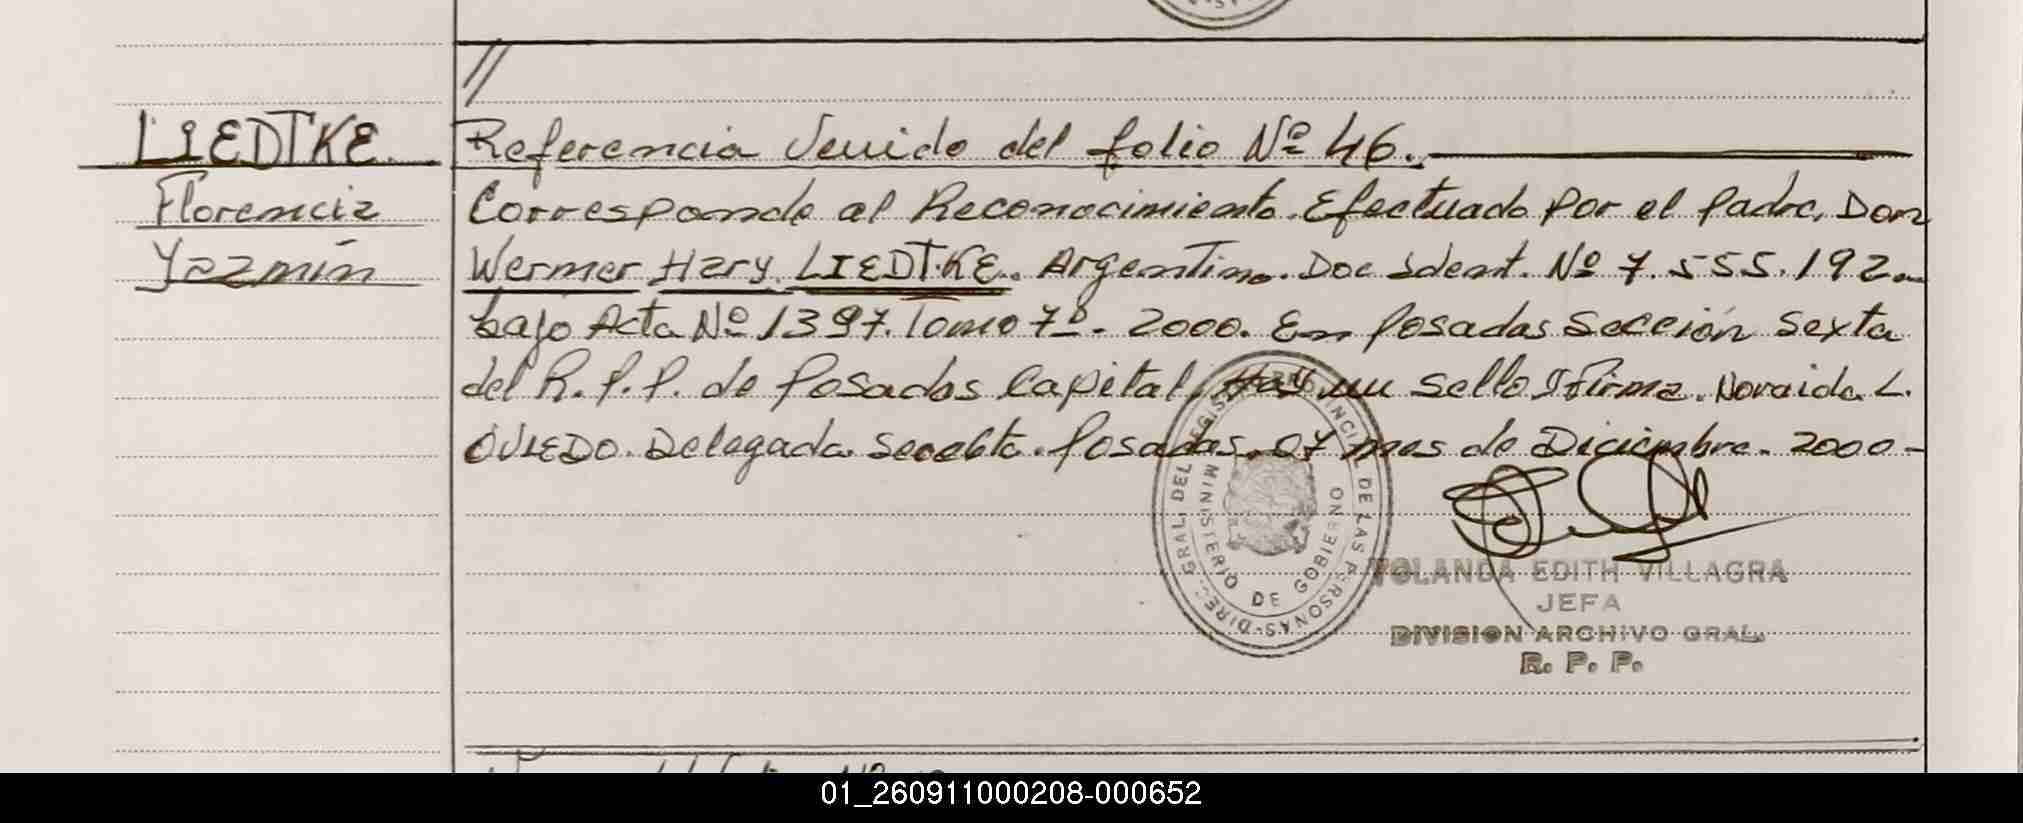 //
LIEDTKE Referencia Venido del folio Nº 46.
Florencia Corresponde al Reconocimiento. Efectuado por el padre, Don
Yazmín Wermer Hary. LIEDTKE. Argentino. Doc Ident. Nº 7.555.192
bajo Acta Nº 1397. Tomo 7º. 2000. En Posadas Sección Sexta
del R.P.P. de Posadas Capital, Hay un Sello y firma. Noraida L.
OVIEDO. Delegada. Posadas. 07 mes de Diciembre. 2000-
DIREC. GRAL. DEL REGIST. PROVINCIAL DE LAS PERSONAS-
MINISTERIO DE GOBIERNO
YOLANDA EDITH VILLAGRA
JEFA
DIVISION ARCHIVO GRAL.
R. P. P.
01_260911000208-000652